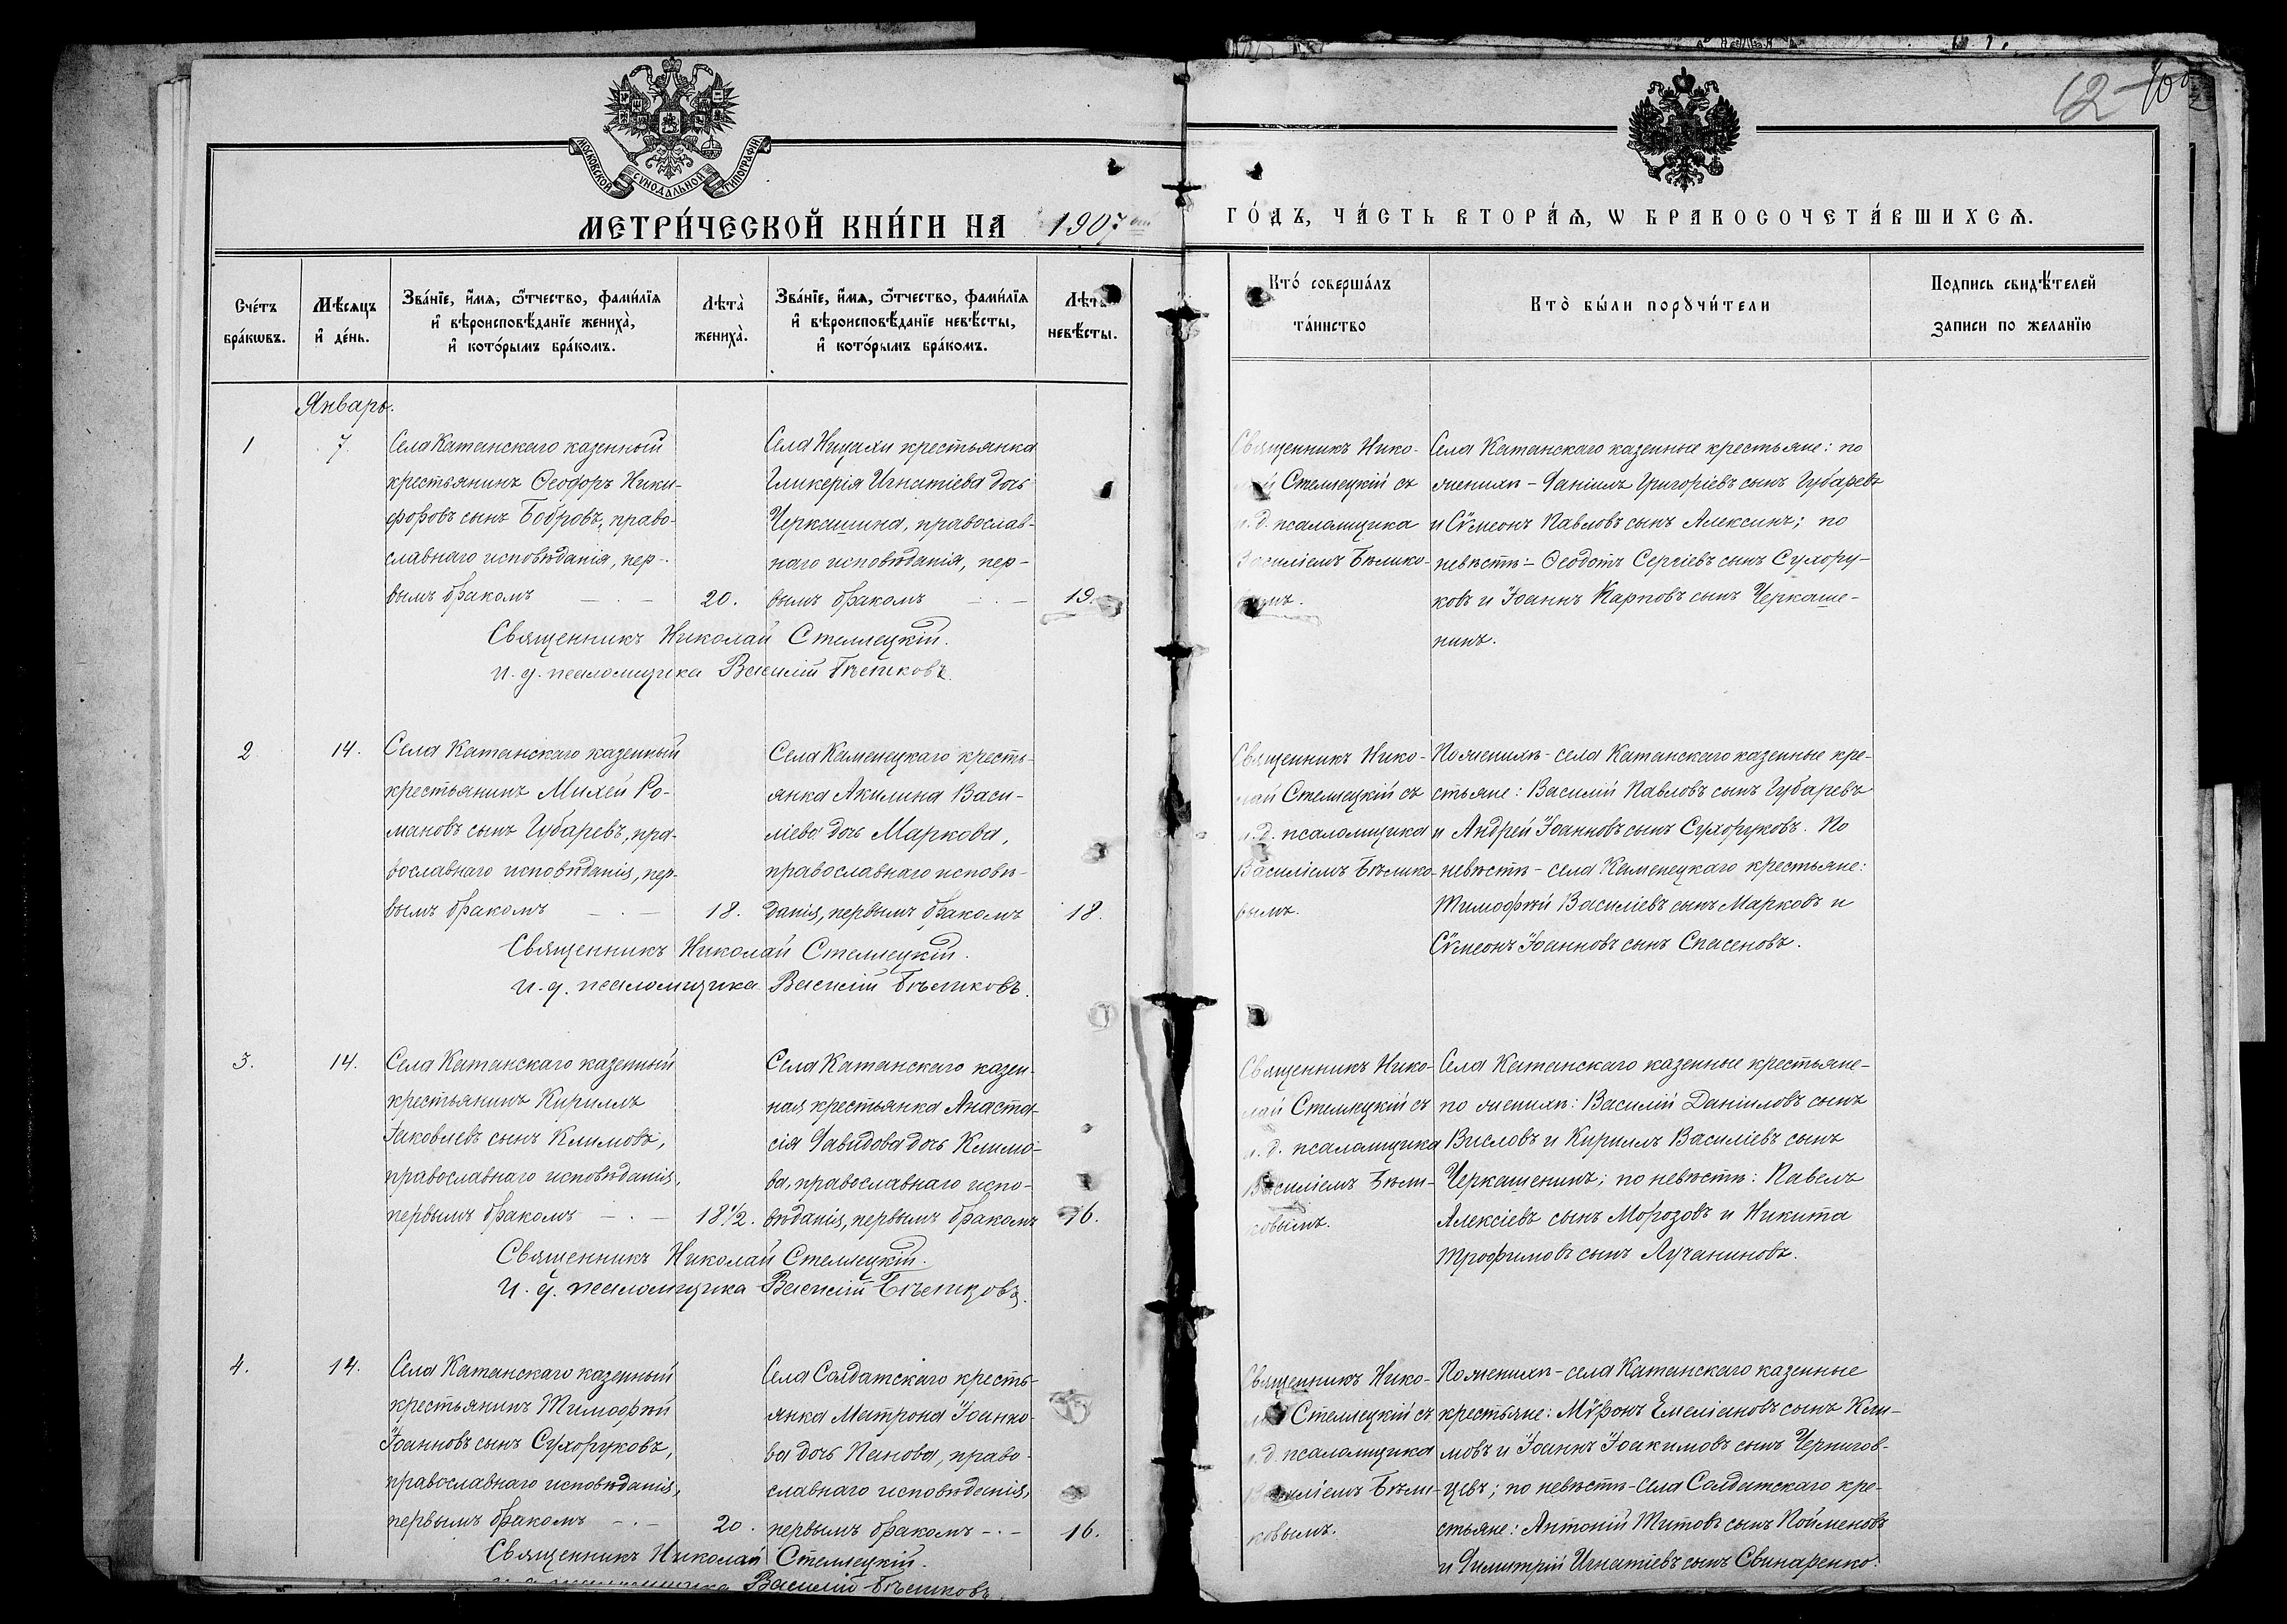 МОСКОВСКОЙ СѴНОДАЛЬНОЙ ТИПОГРАФІИ
МЕТРИ́ЧЕСКОЙ КНИ́ГИ НА 1907
ГО́ДЪ, ЧА́СТЬ ВТОРА́Ѧ, Ѡ БРАКОСОЧЕТА́ВШИХСѦ.
12
Сче́тъ бра́кѡвъ.
Мѣ́сѧцъ и҆ де́нь.
Зва́нїе, и҆́мѧ, ѻ҆́тчество, фамѝлїѧ и҆ вѣроисповѣ́данїе жениха̀, и҆ кото́рымъ бра́комъ.
Лѣта̀ жениха̀.
Зва́нїе, и҆́мѧ, ѻ҆́тчество, фамѝлїѧ и҆ вѣроисповѣ́данїе невѣ́сты, и҆ кото́рымъ бра́комъ.
Лѣта̀ невѣ́сты.
Кто́ соверша́лъ та́инство
Кто̀ бы́ли порꙋчи́тели
Подпись свидѣ́телей записи по желанїю
Январь.
1
7.
Села Катанскаго казенный
крестьянинъ Ѳеодоръ Ники-
форовъ сынъ Бобровъ, право-
славнаго исповѣданія, пер-
вымъ бракомъ
20.
Села Ницахи крестьянка
Гликерія Игнатіева дочь
Черкашина, православ-
наго исповѣданія, пер-
вымъ бракомъ
19.
Священникъ Нико-
Стеллецкій съ
и.д. псаломщика
Василіемъ Бѣлико-
Села Катанскаго казенные крестьяне: по
женихѣ - Даніилъ Григоріевъ сынъ Губаревъ
и Сѵмеонъ Павловъ сынъ Алексинъ; по
невѣстѣ - Ѳеодотъ Сергіевъ сынъ Сухору-
ковъ и Іоаннъ Карповъ сынъ Черкаше-
нинъ.
Священникъ Николай Стеллецкій.
и. д. псаломщика Василій Бѣликовъ.
2
14.
Села Катанскаго казенный
крестьянинъ Михей Ро-
мановъ сынъ Губаревъ, пра-
вославнаго исповѣданія, пер-
вымъ бракомъ
18.
Села Каменецкаго кресть-
янка Акилина Васи-
ліева дочь Маркова,
православнаго исповѣ-
данія, первымъ бракомъ
18.
Священникъ Нико-
лай Стеллецкій съ
и.д. псаломщика
Василіемъ Бѣлико-
вымъ.
По женихѣ - села Катанскаго казенные кре-
стьяне: Василій Павловъ сынъ Губаревъ
и Андрей Іоанновъ сынъ Сухоруковъ. По
невѣстѣ - села Каменецкаго крестьяне:
Тимофей Василіевъ сынъ Марковъ и
Сѵмеонъ Іоанновъ сынъ Спасеновъ.
Священникъ Николай Стеллецкій.
и. д. псаломщика Василій Бѣликовъ.
3.
14.
Села Катанскаго казенный
крестьянинъ Кириллъ
Іаковлевъ сынъ Климовъ,
православнаго исповѣданія,
первымъ бракомъ
18½.
Села Катанскаго казен-
ная крестьянка Анаста-
сія Давидова дочь Климо-
ва, православнаго испо-
вѣданія, первымъ бракомъ
16.
Священникъ Нико-
лай Стеллецкій съ
и.д. псаломщика
Василіемъ Бѣли-
ковымъ.
Села Катанскаго казенные крестьяне -
по женихѣ: Василій Даніиловъ сынъ
Висловъ и Кириллъ Василіевъ сынъ
Черкашенинъ; по невѣстѣ: Павелъ
Алексіевъ сынъ Морозовъ и Никита
Трофимовъ сынъ Лучаниновъ.
Священникъ Николай Стеллецкій.
и. д. псаломщика Василій Бѣликовъ.
4.
14.
Села Катанскаго казенный
крестьянинъ Тимофѣй
Іоанновъ сынъ Сухоруковъ,
православнаго исповѣданія,
первымъ бракомъ
20.
Села Солдатскаго кресть-
янка Матрона Іоанно-
ва дочь Панова, право-
славнаго исповѣданія,
первымъ бракомъ
16.
Священникъ Нико-
Стеллецкій съ
и.д. псаломщика
Василіемъ Бѣли-
ковымъ.
По женихѣ - села Катанскаго казенные
крестьяне: Мѵронъ Емеліановъ сынъ Кли-
мовъ и Іоаннъ Іоакимовъ сынъ Чернигов-
цевъ; по невѣстѣ - села Солдатскаго кре-
стьяне: Антоній Титовъ сынъ Пойменовъ
и Димитрій Игнатіевъ сынъ Свинаренко.
Священникъ Николай Стеллецкій.
и. д. псаломщика Василій Бѣликовъ.